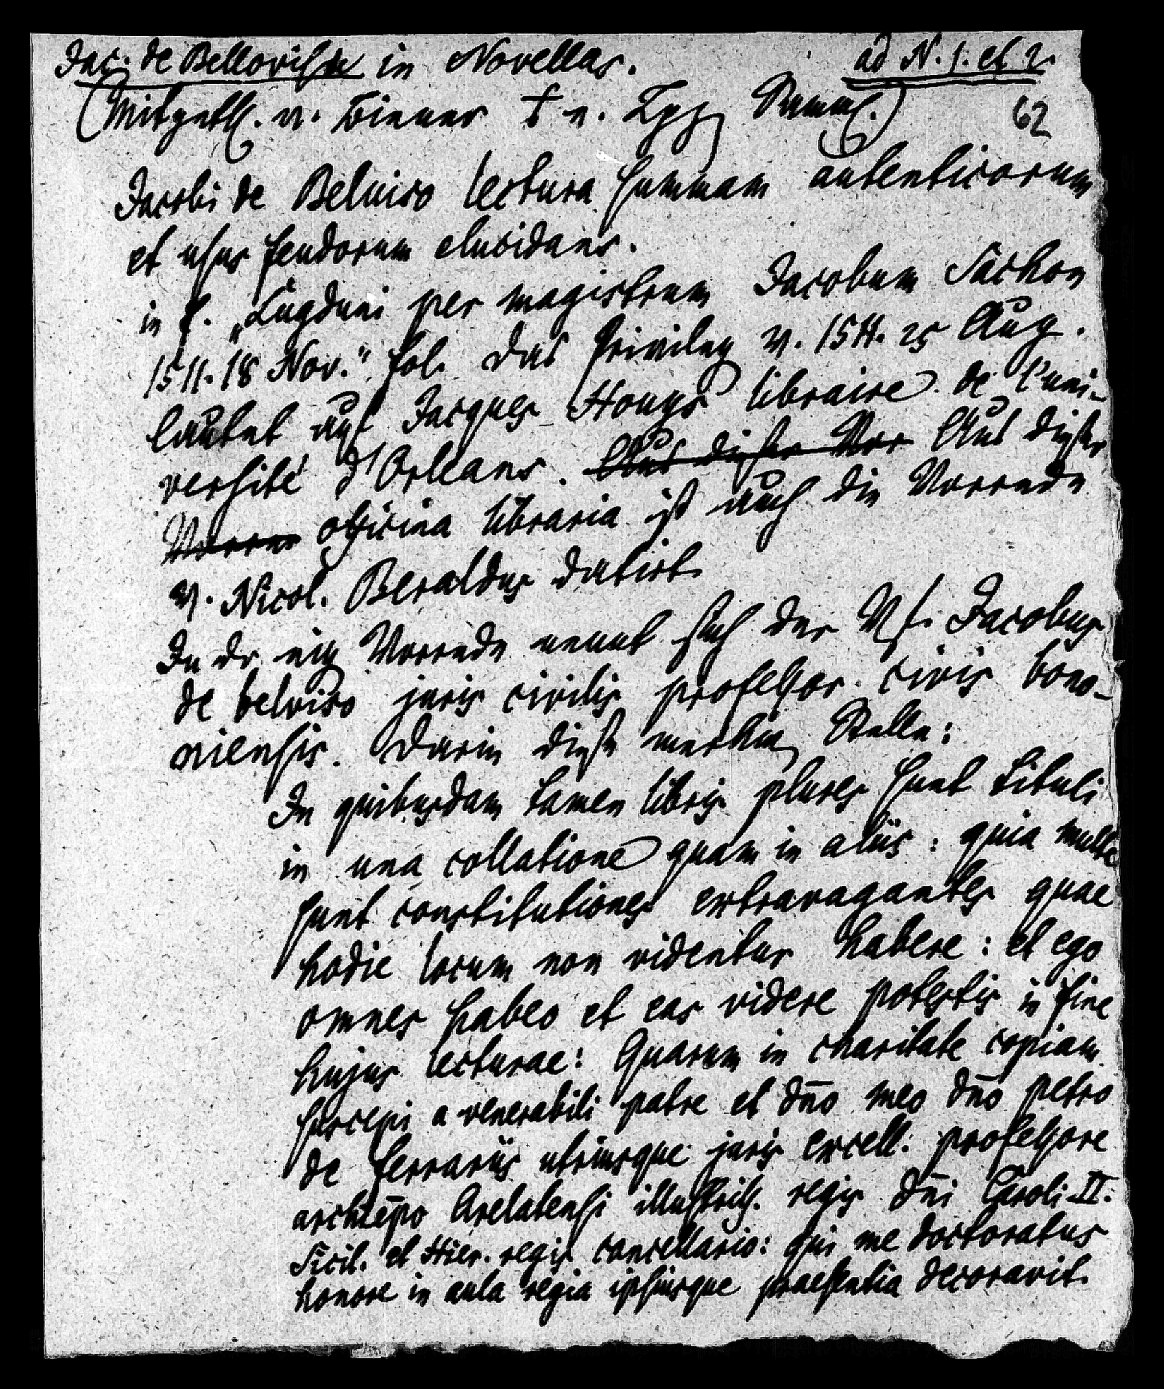 Jac. de Bellovisu in Novellas. ad N. 1. et 2.
(Mitgetheil. v. Biener † u. Lpz. Samml.) 62
Jacobi de Belviso lectura summam autenticorum
et usus feudorum elucidans.
in f. „Lugduni per magistrum Jacobum Sachon
1511. 18 Nov." fol. Das Privileg v. 1511. 25 Aug.
lautet auf Jacques Hougs libraire de l'uni-
versité d'Orleans. Aus dieser Vor Aus dieser
Vorre officina libraria ist auch die Vorrede
v. Nicol. Beraldus datirt.
In dr. eig Vorrede nennt sich der Vf. Jacobus
de belviso juris civilis professor civis bono-
niensis. Darin diese merkw. Stelle:
In quibusdam tamen libris plures sunt tituli
in una collatione quam in aliis: quia multe
sunt constitutiones extravagantes quae
hodie locum non videntur habere: et ego
omnes habeo et eas videre potestis in fine
hujus lecturae: Quarum in charitate copiam
suscepi a venerabili patre et dn̄o meo dn̄o petro
de ferrariis utriusque juris excell. professore
archiep̄o Arelatensi illustriss. regis dn̄i Caroli II.
Sicil. et Hier. regis cancellario: qui me doctoratus
honore in aula regia ipsiusque praesentia decoravit.